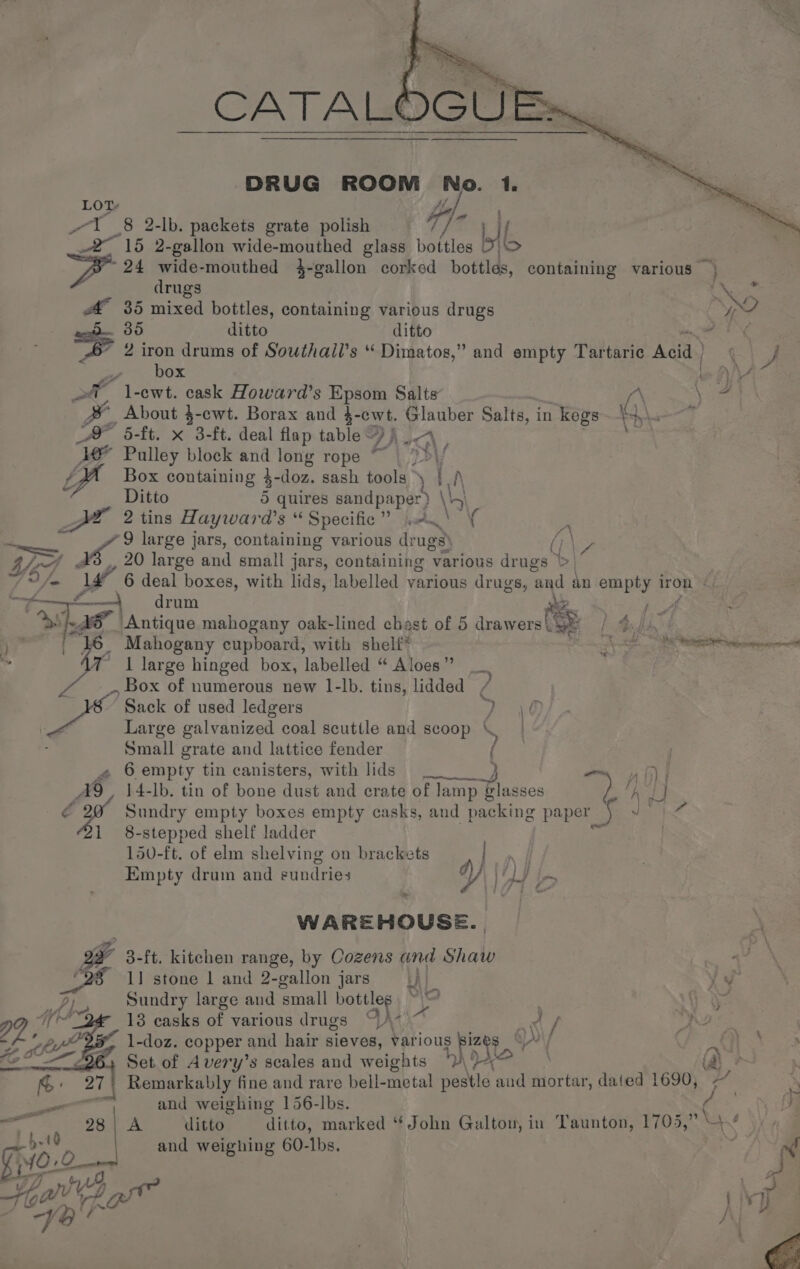 CATALOGUE
DRUG ROOM No. 1.
LOT
1 8 2-lb. packets grate polish
2 15 2-gallon wide-mouthed glass bottles
3 24 wide-mouthed ½-gallon corked bottles, containing various
drugs
4 35 mixed bottles, containing various drugs
5 35 ditto ditto
6 2 iron drums of Southall's “ Dimatos,” and empty Tartaric Acid
box
7 1-cwt. cask Howard's Epsom Salts
8 About ½-cwt. Borax and ½-cwt. Glauber Salts, in kegs
9 5-ft. x 3-ft. deal flap table
10 Pulley block and long rope
11 Box containing ½-doz. sash tools
Ditto 5 quires sandpaper
12 2 tins Hayward's “ Specific ”
9 large jars, containing various drugs
13 20 large and small jars, containing various drugs
14 6 deal boxes, with lids, labelled various drugs, and an empty iron
drum
15 Antique mahogany oak-lined chest of 5 drawers
16 Mahogany cupboard, with shelf
17 1 large hinged box, labelled “ Aloes ”
Box of numerous new 1-lb. tins, lidded
18 Sack of used ledgers
Large galvanized coal scuttle and scoop
Small grate and lattice fender
6 empty tin canisters, with lids
19 14-lb. tin of bone dust and crate of lamp glasses
20 Sundry empty boxes empty casks, and packing paper
21 8-stepped shelf ladder
150-ft. of elm shelving on brackets
Empty drum and sundries
WAREHOUSE.
22 3-ft. kitchen range, by Cozens and Shaw
23 11 stone 1 and 2-gallon jars
Sundry large and small bottles
24 13 casks of various drugs
25 1-doz. copper and hair sieves, various sizes
26 Set of Avery's scales and weights
27 Remarkably fine and rare bell-metal pestle and mortar, dated 1690,
and weighing 156-lbs.
28 A ditto ditto, marked “ John Galton, in Taunton, 1705,”
and weighing 60-lbs.